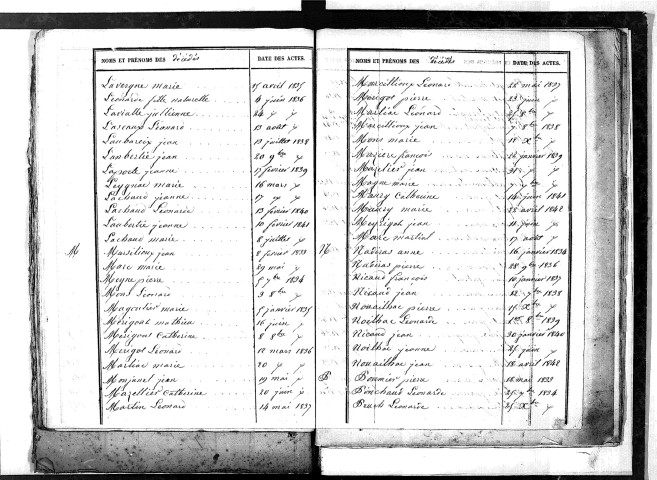 NOMS ET PRÉNOMS DES décédés DATE DES ACTES.
Lavergne marie 15 avril 1835
Léonarde fille naturelle 4 juin 1836
Lavialle jullienne 24 y y
Lascaux Léonard 13 août y
Laubareix jean 13 juillet 1838
Lambertie jean 20 9bre y
Laporte jeanne 17 février 1839
Leygnac marie 16 mars y
Lachaud jeanne 17 y
Lachaud Léonarde 13 février 1840
Laubertie jeanne 10 février 1841
Lachaud marie 8 juillet y
M Marcilloux jean 2 février 1833
Marc marie 29 mai y
Meyne pierre 5 7bre 1834
Mons Léonard 3 8bre y
Magoutier marie 5 janvier 1835
Mérigout mathieu 16 juin y
Mérigout Catherine 8 8bre y
Mérigot Léonard 12 mars 1836
Martine marie 20 y y
Monjanel jean 19 mai y
Mazellier Catherine 20 juin y
Martin Léonard 14 mai 1837
NOMS ET PRÉNOMS DES décédés DATE DES ACTES.
Marcilloux Léonard 22 mai 1837
Mérigot pierre 23 juin y
Martine Léonard 25 8bre y
Marcilloux jean 7 8bre 1838
Mons marie 18 Xbre y
Maziere françois 22 janvier 1839
Mazelier jean 31 y y
Magne marie 7 7bre y
Maury Catherine 14 juin 1841
Maury marie 22 avril 1842
Meyrigot jean 11 juin y
Marc martial 17 août y
N Nadiras anne 16 janvier 1834
Nadiras pierre 28 9bre 1836
Nicaud françois 10 janvier 1837
Nicaud jean 12 7bre 1838
Nouailhac pierre 15 Xbre y
Noilhac Léonarde 8bre 1839
Nicaud jean 30 janvier 1840
Noilhac jeanne 25 juin y
Nouailhac jean 18 avril 1842
P Pommier pierre 18 mai 1833
Ponchaud Léonarde 25 7bre 1834
Peuch Léonarde 25 Xbre y